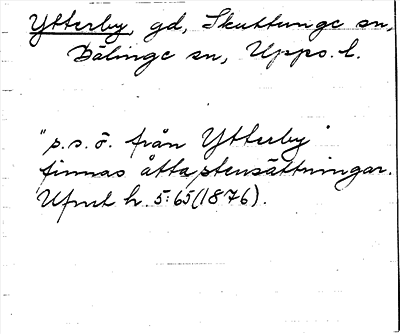 Ytterby, gd, Skuttunge sn,
Bälinge sn, Upps. l.
"s.s.ö. från Ytterby"
finnas åtta stensättningar.
Ufmt h. 5:65 (1876).